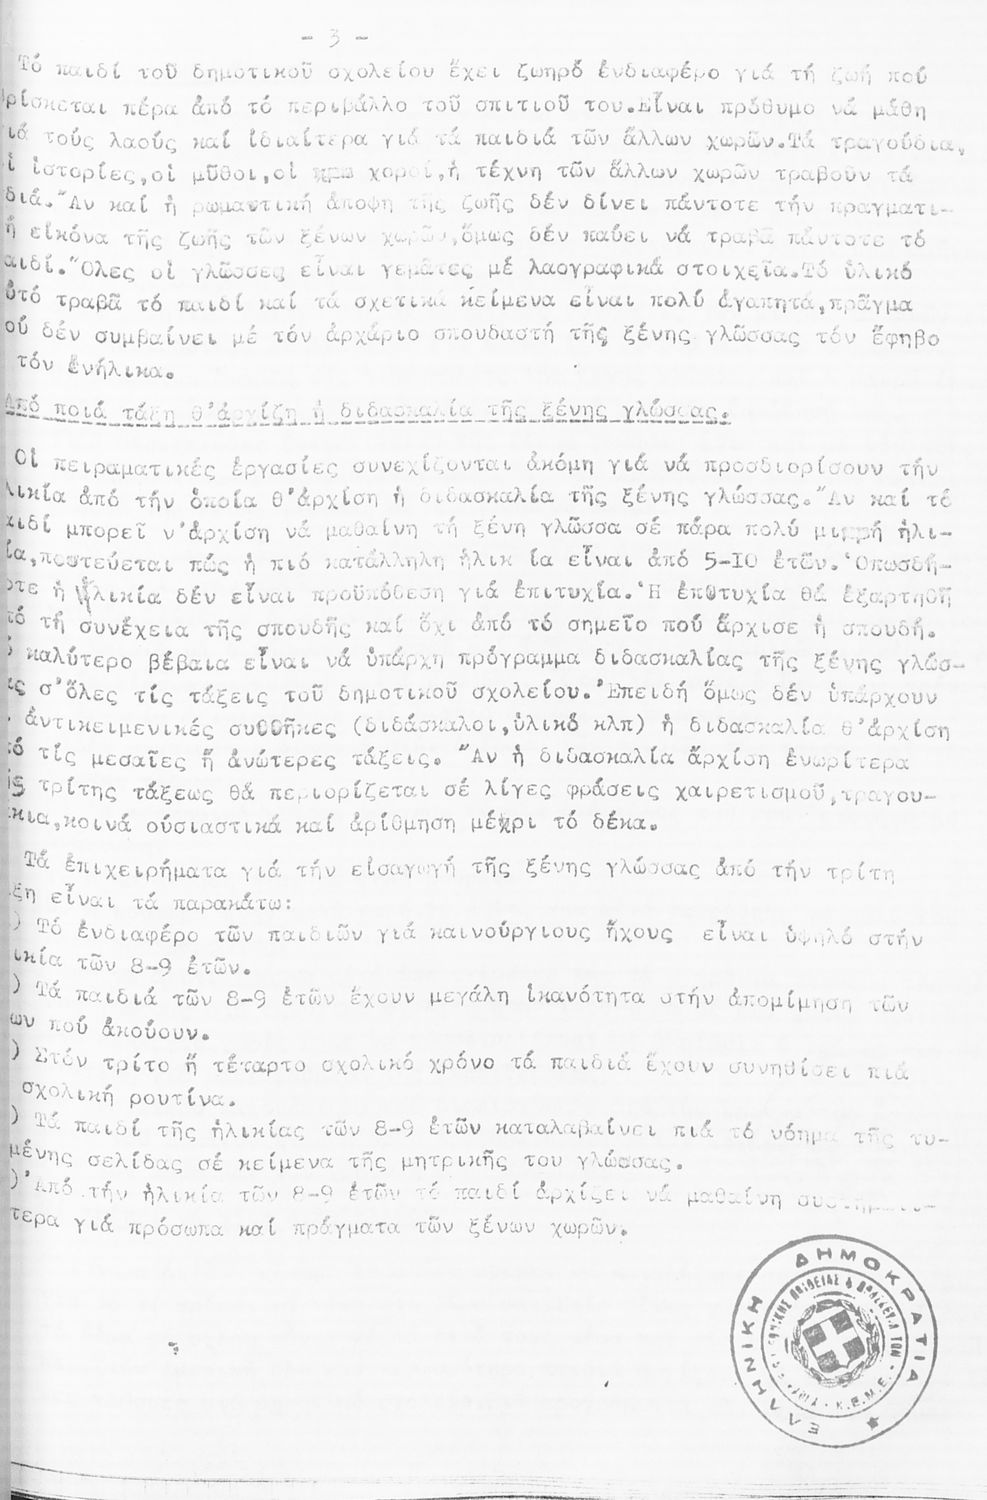 - 3 -
Τό παιδί τοῦ δημοτικοῦ σχολείου ἔχει ζωηρό ἐνδιαφέρο γιά τή ζωή πού
ρίσκεται πέρα ἀπό τό περιβάλλο τοῦ σπιτιοῦ του.Εἶναι πρόθυμο νά μάθη
ιά τούς λαούς καί ἰδιαίτερα γιά τά παιδιά τῶν ἄλλων χωρῶν.Τά τραγούδια,
ἱ ἱστορίες,οἱ μῦθοι,οἱ χοροί,ἡ τέχνη τῶν ἄλλων χωρῶν τραβοῦν τά
διά.Ἄν καί ἡ ρωμαντική ἄποψη τῆς ζωῆς δέν δίνει πάντοτε τήν πραγματι-
ή εἰκόνα τῆς ζωῆς τῶν ξένων χωρῶν,ὅμως δέν παύει νά τραβᾶ πάντοτε τό
αιδί.Ὅλες οἱ γλῶσσες εἶναι γεμᾶτες μέ λαογραφικά στοιχεῖα.Τό ὑλικό
ὐτό τραβᾶ τό παιδί καί τά σχετικά κείμενα εἶναι πολύ ἀγαπητά,πρᾶγμα
ού δέν συμβαίνει μέ τόν ἀρχάριο σπουδαστή τῆς ξένης γλώσσας τόν ἔφηβο
τόν ἐνήλικα.
Ἀπό ποιά τάξη θ'ἀρχίζη ἡ διδασκαλία τῆς ξένης γλώσσας.
Οἱ πειραματικές ἐργασίες συνεχίζονται ἀκόμη γιά νά προσδιορίσουν τήν
λικία ἀπό τήν ὁποία θ'ἀρχίση ἡ διδασκαλία τῆς ξένης γλώσσας.Ἄν καί τό
αιδί μπορεῖ ν'ἀρχίση νά μαθαίνη τή ξένη γλῶσσα σέ πάρα πολύ μικρή ἡλι-
ία,πιστεύεται πώς ἡ πιό κατάλληλη ἡλικ ία εἶναι ἀπό 5-10 ἐτῶν.Ὁπωσδή-
οτε ἡ ἡλικία δέν εἶναι προϋπόθεση γιά ἐπιτυχία.Ἡ ἐπιτυχία θά ἐξαρτηθῆ
πό τή συνέχεια τῆς σπουδῆς καί ὄχι ἀπό τό σημεῖο πού ἄρχισε ἡ σπουδή.
ό καλύτερο βέβαια εἶναι νά ὑπάρχη πρόγραμμα διδασκαλίας τῆς ξένης γλώσ-
ας σ'ὅλες τίς τάξεις τοῦ δημοτικοῦ σχολείου.Ἐπειδή ὅμως δέν ὑπάρχουν
ἀντικειμενικές συθθῆκες (διδάσκαλοι,ὑλικό κλπ) ἡ διδασκαλία θ'ἀρχίση
πό τίς μεσαῖες ἤ ἀνώτερες τάξεις. Ἄν ἡ διδασκαλία ἄρχίση ἐνωρίτερα
ῆς τρίτης τάξεως θά περιορίζεται σέ λίγες φράσεις χαιρετισμοῦ,τραγου-
άκια,κοινά οὐσιαστικά καί ἀρίθμηση μέχρι τό δέκα.
Τά ἐπιχειρήματα γιά τήν εἰσαγωγή τῆς ξένης γλώσσας ἀπό τήν τρίτη
άξη εἶναι τά παρακάτω:
) Τό ἐνδιαφέρο τῶν παιδιῶν γιά καινούργιους ἤχους εἶναι ὑψηλό στήν
ικία τῶν 8-9 ἐτῶν.
) Τά παιδιά τῶν 8-9 ἐτῶν ἔχουν μεγάλη ἱκανότητα στήν ἀπομίμηση τῶν
ων πού ἀκούουν.
) Στόν τρίτο ἤ τέταρτο σχολικό χρόνο τά παιδιά ἔχουν συνηθίσει πιά
σχολική ρουτίνα.
) Τά παιδί τῆς ἡλικίας τῶν 8-9 ἐτῶν καταλαβαίνει πιά τό νόημα τῆς τυ-
μένης σελίδας σέ κείμενα τῆς μητρικῆς του γλώσσας.
) Ἀπό τήν ἡλικία τῶν 8-9 ἐτῶν τό παιδί ἀρχίζει νά μαθαίνη συστηματι-
τερα γιά πρόσωπα καί πράγματα τῶν ξένων χωρῶν.
ΕΛΛΗΝΙΚΗ ΔΗΜΟΚΡΑΤΙΑ
ΠΑΙΔΕΙΑΣ & ΘΡΗΣΚΕΥΜΑΤΩΝ
Κ.Ε.Μ.Ε.